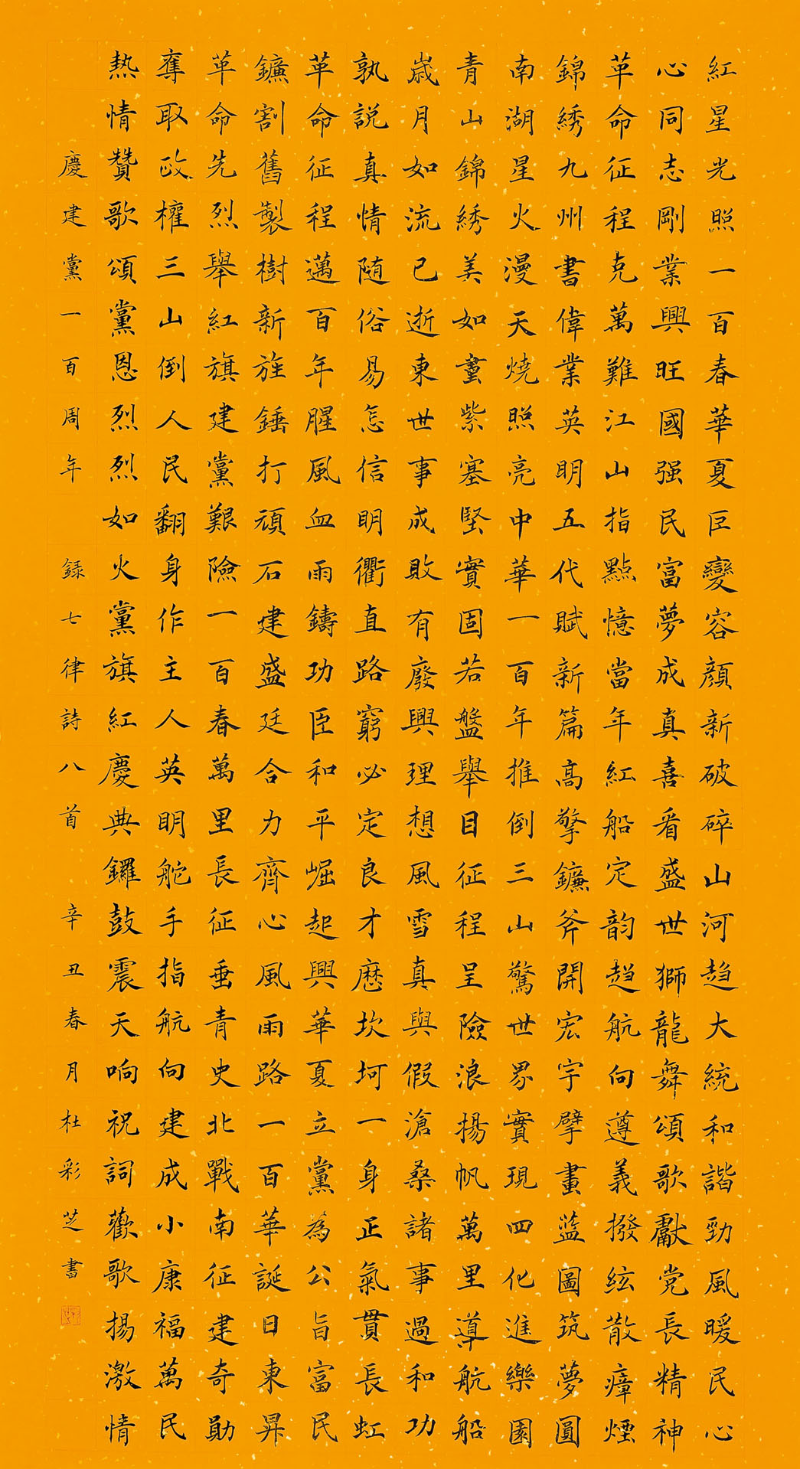 紅星光照一百春華夏巨變容顔新破碎山河趋大統和諧勁風暖民心
心同志剛業興旺國强民富夢成真喜看盛世獅龍舞頌歌獻党長精神
革命征程克萬難江山指點憶當年紅船定韵趋航向遵義撥絃散瘴煙
錦綉九州書偉業英明五代賦新篇高擎鐮斧開宏宇擘畫藍圖筑夢圓
南湖星火漫天燒照亮中華一百年推倒三山驚世界實現四化進樂園
青山錦綉美如畫紫塞堅實固若盤舉目征程呈險浪揚帆萬里導航船
歲月如流已逝東世事成敗有廢興理想風雪真與假滄桑諸事過和功
孰説真情隨俗易怎信明衢直路窮必定良才歷坎坷一身正氣貫長虹
革命征程邁百年腥風血雨鑄功臣和平崛起興華夏立黨為公旨富民
鐮割舊製樹新旌錘打頑石建盛廷合力齊心風雨路一百華誕日東昇
革命先烈舉紅旗建黨艱險一百春萬里長征垂青史北戰南征建奇勛
奪取政權三山倒人民翻身作主人英明舵手指航向建成小康福萬民
熱情贊歌頌黨恩烈烈如火黨旗紅慶典鑼鼓震天响祝詞歡歌揚激情
慶建黨一百周年 録七律詩八首 辛丑春月杜彩芝書